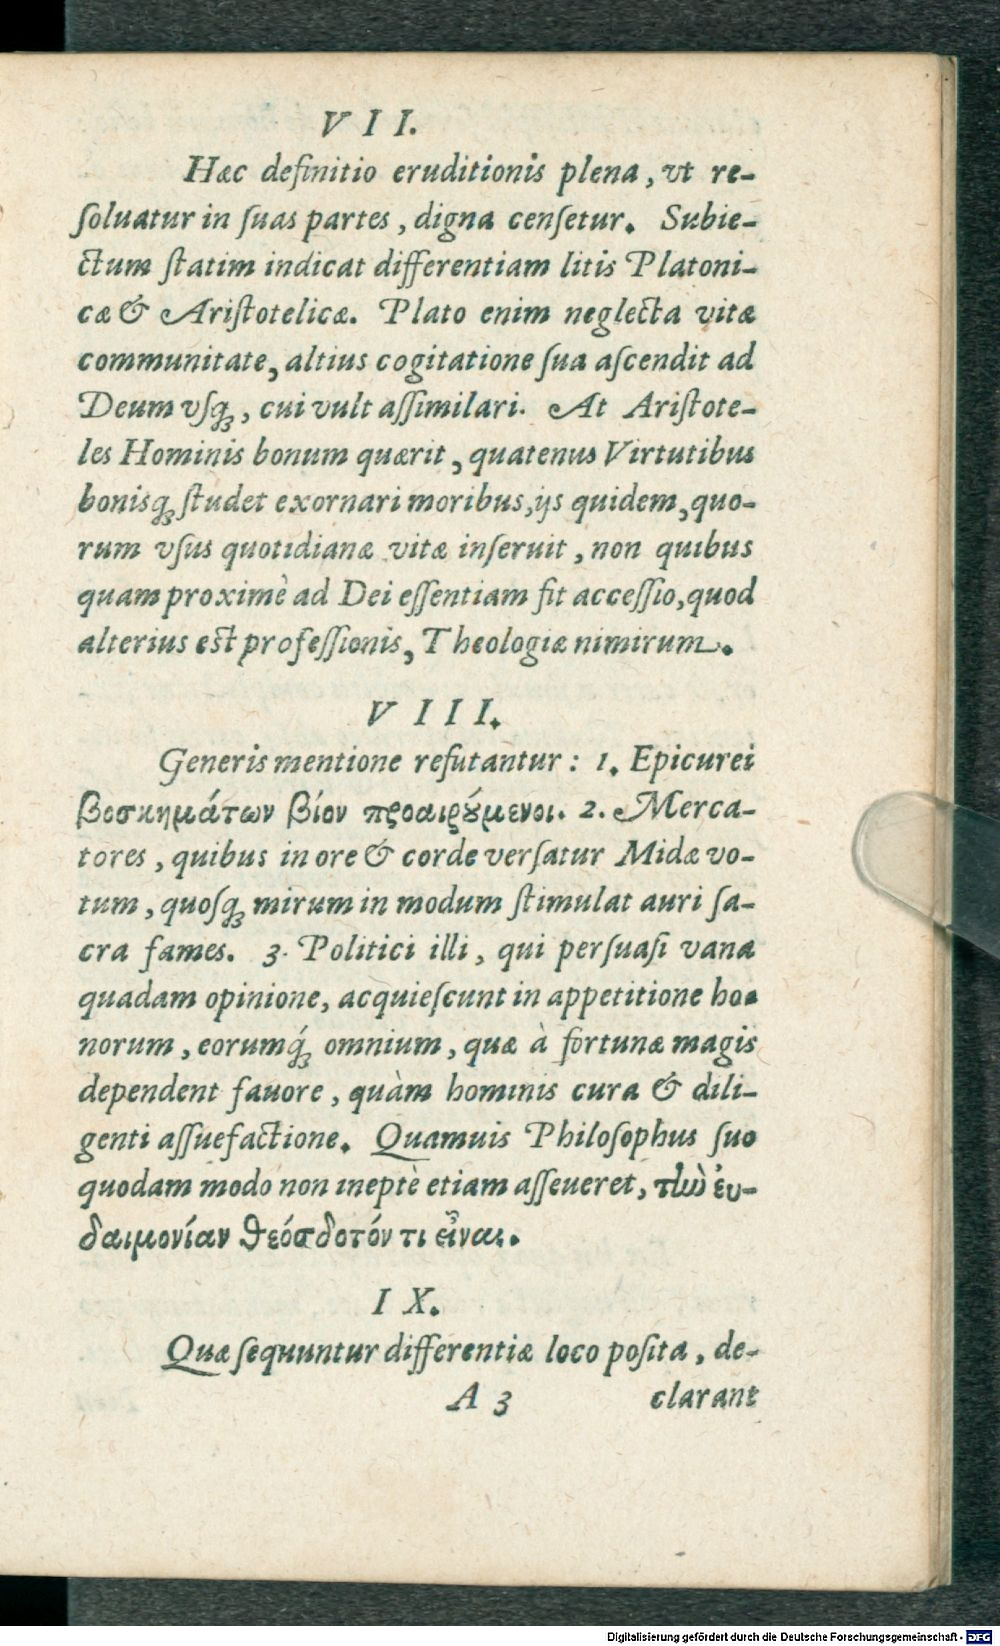 VII.
Hæc definitio eruditionis plena, vt re-
ſoluatur in ſuas partes, digna cenſetur. Subie-
ctum ſtatim indicat differentiam litis Platoni-
cæ & Ariſtotelicæ. Plato enim neglecta vitæ
communitate, altius cogitatione ſua aſcendit ad
Deum vſq;, cui vult aſſimilari. At Ariſtote-
les Hominis bonum quærit, quatenus Virtutibus
bonisq; ſtudet exornari moribus, ijs quidem, quo-
rum vſus quotidianæ vitæ inſeruit, non quibus
quam proximè ad Dei eſſentiam fit acceſſio, quod
alterius est profeſſionis, Theologiæ nimirum.
VIII.
Generis mentione refutantur: 1. Epicurei
βοσκημάτων βίον προαιρȣ́μενοι. 2. Merca-
tores, quibus in ore & corde verſatur Midæ vo-
tum, quoſq; mirum in modum ſtimulat auri ſa-
cra fames. 3. Politici illi, qui perſuaſi vana
quadam opinione, acquieſcunt in appetitione ho-
norum, eorumq́; omnium, quæ à fortunæ magis
dependent fauore, quàm hominis cura & dili-
genti aſſuefactione. Quamuis Philoſophus ſuo
quodam modo non ineptè etiam aſſeueret, τὼ ἐυ-
δαιμονίαν θεόσδοτόν τι εἶναι.
IX.
Quæ ſequuntur differentiæ loco poſita, de-
A 3 clarant
Digitalisierung gefördert durch die Deutsche Forschungsgemeinschaft - DFG